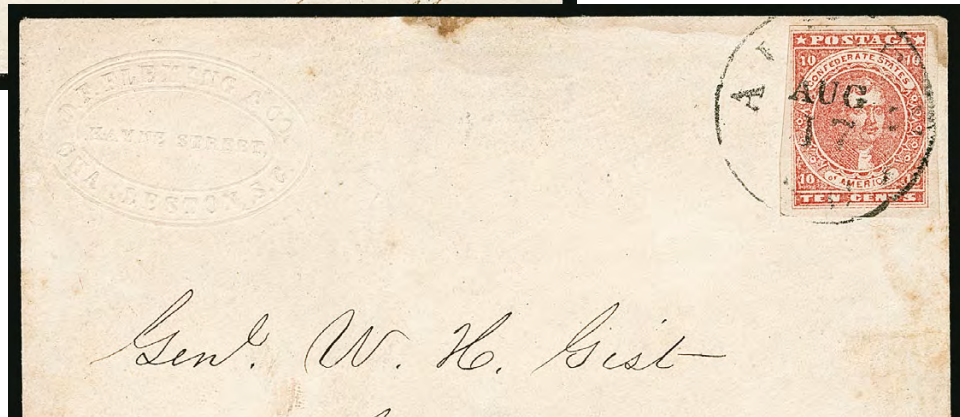 FLEMING & CO.
HAYNE STREET,
CHARLESTON, S.C.
POSTAGE
10 10
CONFEDERATE STATES
AUG
1
10
OF AMERICA
TEN CENTS
Genl. W. H. Gist